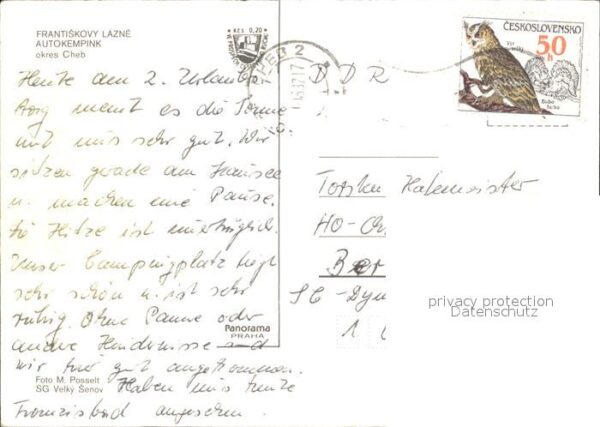 FRANTIŠKOVY LÁZNĚ
AUTOKEMPINK
okres Cheb
Heute am 2. Urlaubs-
tag meint es die Sonne
mit uns sehr gut. Wir
sitzen gerade am
u. machen eine Pause.
die Hitze ist unerträglich.
Unser Campingplatz liegt
sehr schön u. ist sehr
ruhig. Ohne Panne oder
andere Hindernisse sind
wir hier gut angekommen.
Haben uns heute
Franzisbad angesehen.
Panorama
PRAHA
Foto M. Posselt
SG Velký Šenov
KčS 0,20
CHEB 2
DDR
ČESKOSLOVENSKO
Výr velký
50 h
Bubo bubo
Hakemeister
HO-
Ber
SC-Dyn
1
privacy protection
Datenschutz